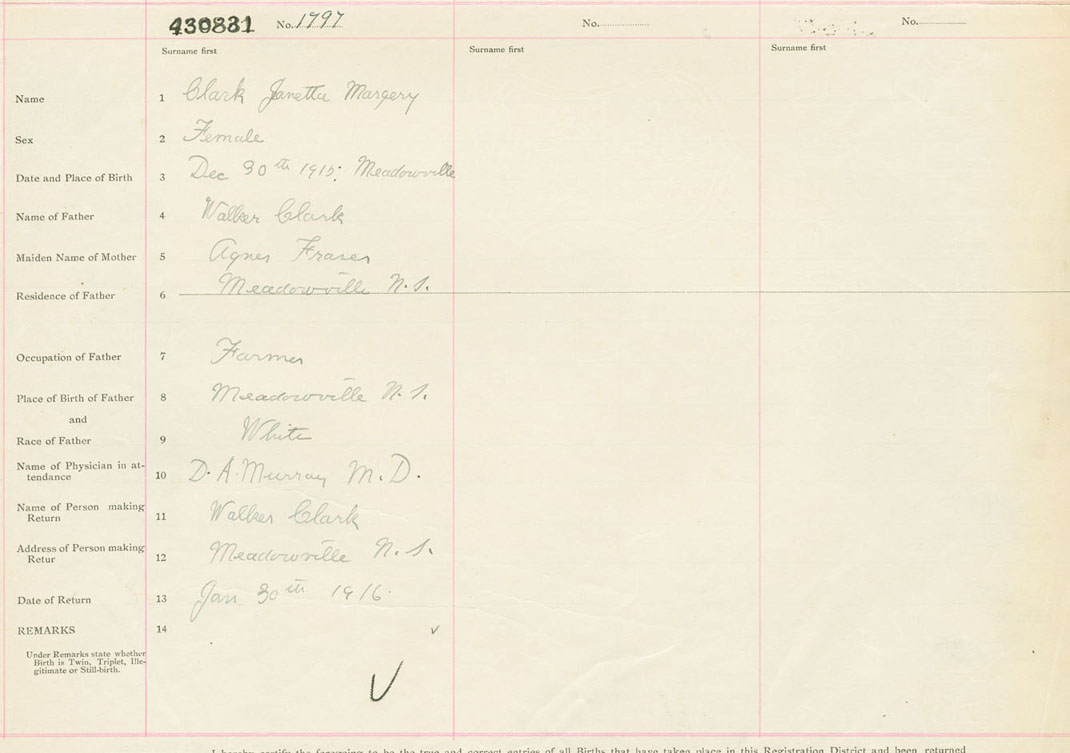 430831 No. 1797 No. No.
Surname first Surname first Surname first
Name 1 Clark Janetta Margery
Sex 2 Female
Date and Place of Birth 3 Dec 30th 1915: Meadowville
Name of Father 4 Walker Clark
Maiden Name of Mother 5 Agnes Fraser
Residence of Father 6 Meadowville N.S.
Occupation of Father 7 Farmer
Place of Birth of Father 8 Meadowville N.S.
and
Race of Father 9 White
Name of Physician in at-
tendance 10 D. A. Murray M.D.
Name of Person making
Return 11 Walker Clark
Address of Person making
Retur 12 Meadowville N.S.
Date of Return 13 Jan 30th 1916.
REMARKS 14
Under Remarks state whether
Birth is Twin, Triplet, Ille-
gitimate or Still-birth.
I hereby certify the foregoing to be the true and correct entries of all Births that have taken place in this Registration District and been returned